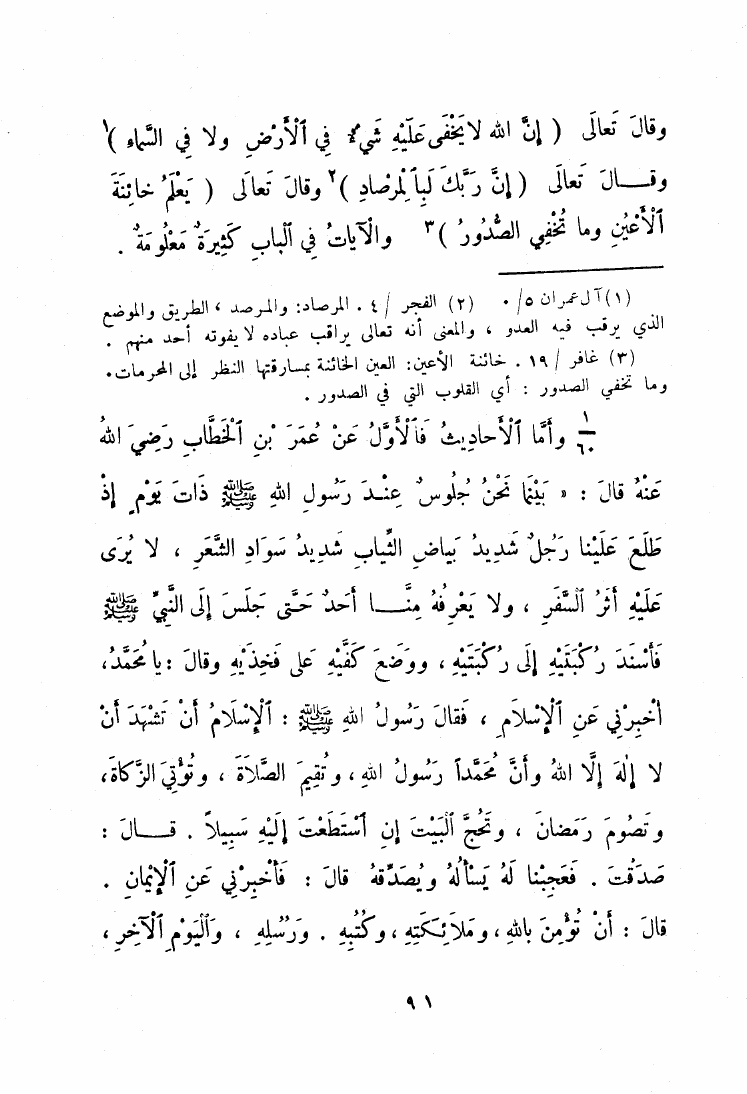 وقالَ تَعالَى ( إِنَّ الله لا يَخْفَى عَلَيْهِ شَيْءٌ فِي ٱلْأَرْضِ ولا فِي السَّماءِ )١
وقـــالَ تَعالَى ( إِنَّ رَبَّكَ لَبِٱلْمِرْصادِ )٢ وقالَ تَعالَى ( يَعْلَمُ خائِنَةَ
الْأَعْيُنِ وما تُخْفِي الصُّدُورُ )٣ والْآياتُ فِي ٱلْبابِ كَثِيرَةٌ مَعْلُومَةٌ .
(١) آل عمران ٥/ ٠ (٢) الفجر / ٤ . المرصاد: والمرصد ، الطريق والموضع
الذي يرقب فيه العدو ، والمعنى أنه تعالى يراقب عباده لا يفوته أحد منهم .
(٣) غافر / ١٩ . خائنة الأعين: العين الخائنة بمسارقتها النظر إلى المحرمات.
وما تخفي الصدور : أي القلوب التي في الصدور .
١/٦٠ وأَمَّا ٱلْأَحادِيثُ فَٱلْأَوَّلُ عَنْ عُمَرَ بْنِ ٱلْخَطَّابِ رَضِيَ اللهُ
عَنْهُ قالَ : « بَيْنَما نَحْنُ جُلُوسٌ عِنْـدَ رَسُولِ اللهِ ﷺ ذَاتَ يَوْمٍ إِذْ
طَلَعَ عَلَيْنا رَجُلٌ شَدِيدُ بَياضِ الثِّيابِ شَدِيدُ سَوَادِ الشَّعَرِ ، لا يُرَى
عَلَيْهِ أَثَرُ ٱلسَّفَرِ ، ولا يَعْرِفُهُ مِنَّـــا أَحَدٌ حَتَّى جَلَسَ إِلَى النَّبِيِّ ﷺ
فَأَسْنَدَ رُكْبَتَيْهِ إِلَى رُكْبَتَيْهِ ، ووَضَعَ كَفَّيْهِ عَلى فَخِذَيْهِ وقالَ : يا مُحَمَّدُ،
أَخْبِرْنِي عَنِ ٱلْإِسْلَامِ ، فَقالَ رَسُولُ اللهِ ﷺ : ٱلْإِسْلَامُ أَنْ تَشْهَدَ أَنْ
لا إِلٰهَ إِلَّا اللهُ وأَنَّ مُحَمَّداً رَسُولُ اللهِ، وتُقِيمَ الصَّلَاةَ ، وتُؤْتِيَ الزَّكاةَ،
وتَصُومَ رَمَضانَ ، وتَحُجَّ ٱلْبَيْتَ إِنِ ٱسْتَطَعْتَ إِلَيْهِ سَبِيلاً . قـــالَ :
صَدَقْتَ . فَعَجِبْنا لَهُ يَسْأَلُهُ ويُصَدِّقُهُ قالَ : فَأَخْبِرْنِي عَنِ ٱلْإِيْمانِ .
قالَ : أَنْ تُؤْمِنَ بِاللهِ، ومَلَائِكَتِهِ، وكُتُبِهِ . ورُسُلِهِ ، وٱلْيَوْمِ ٱلْآخِرِ ،
٩١